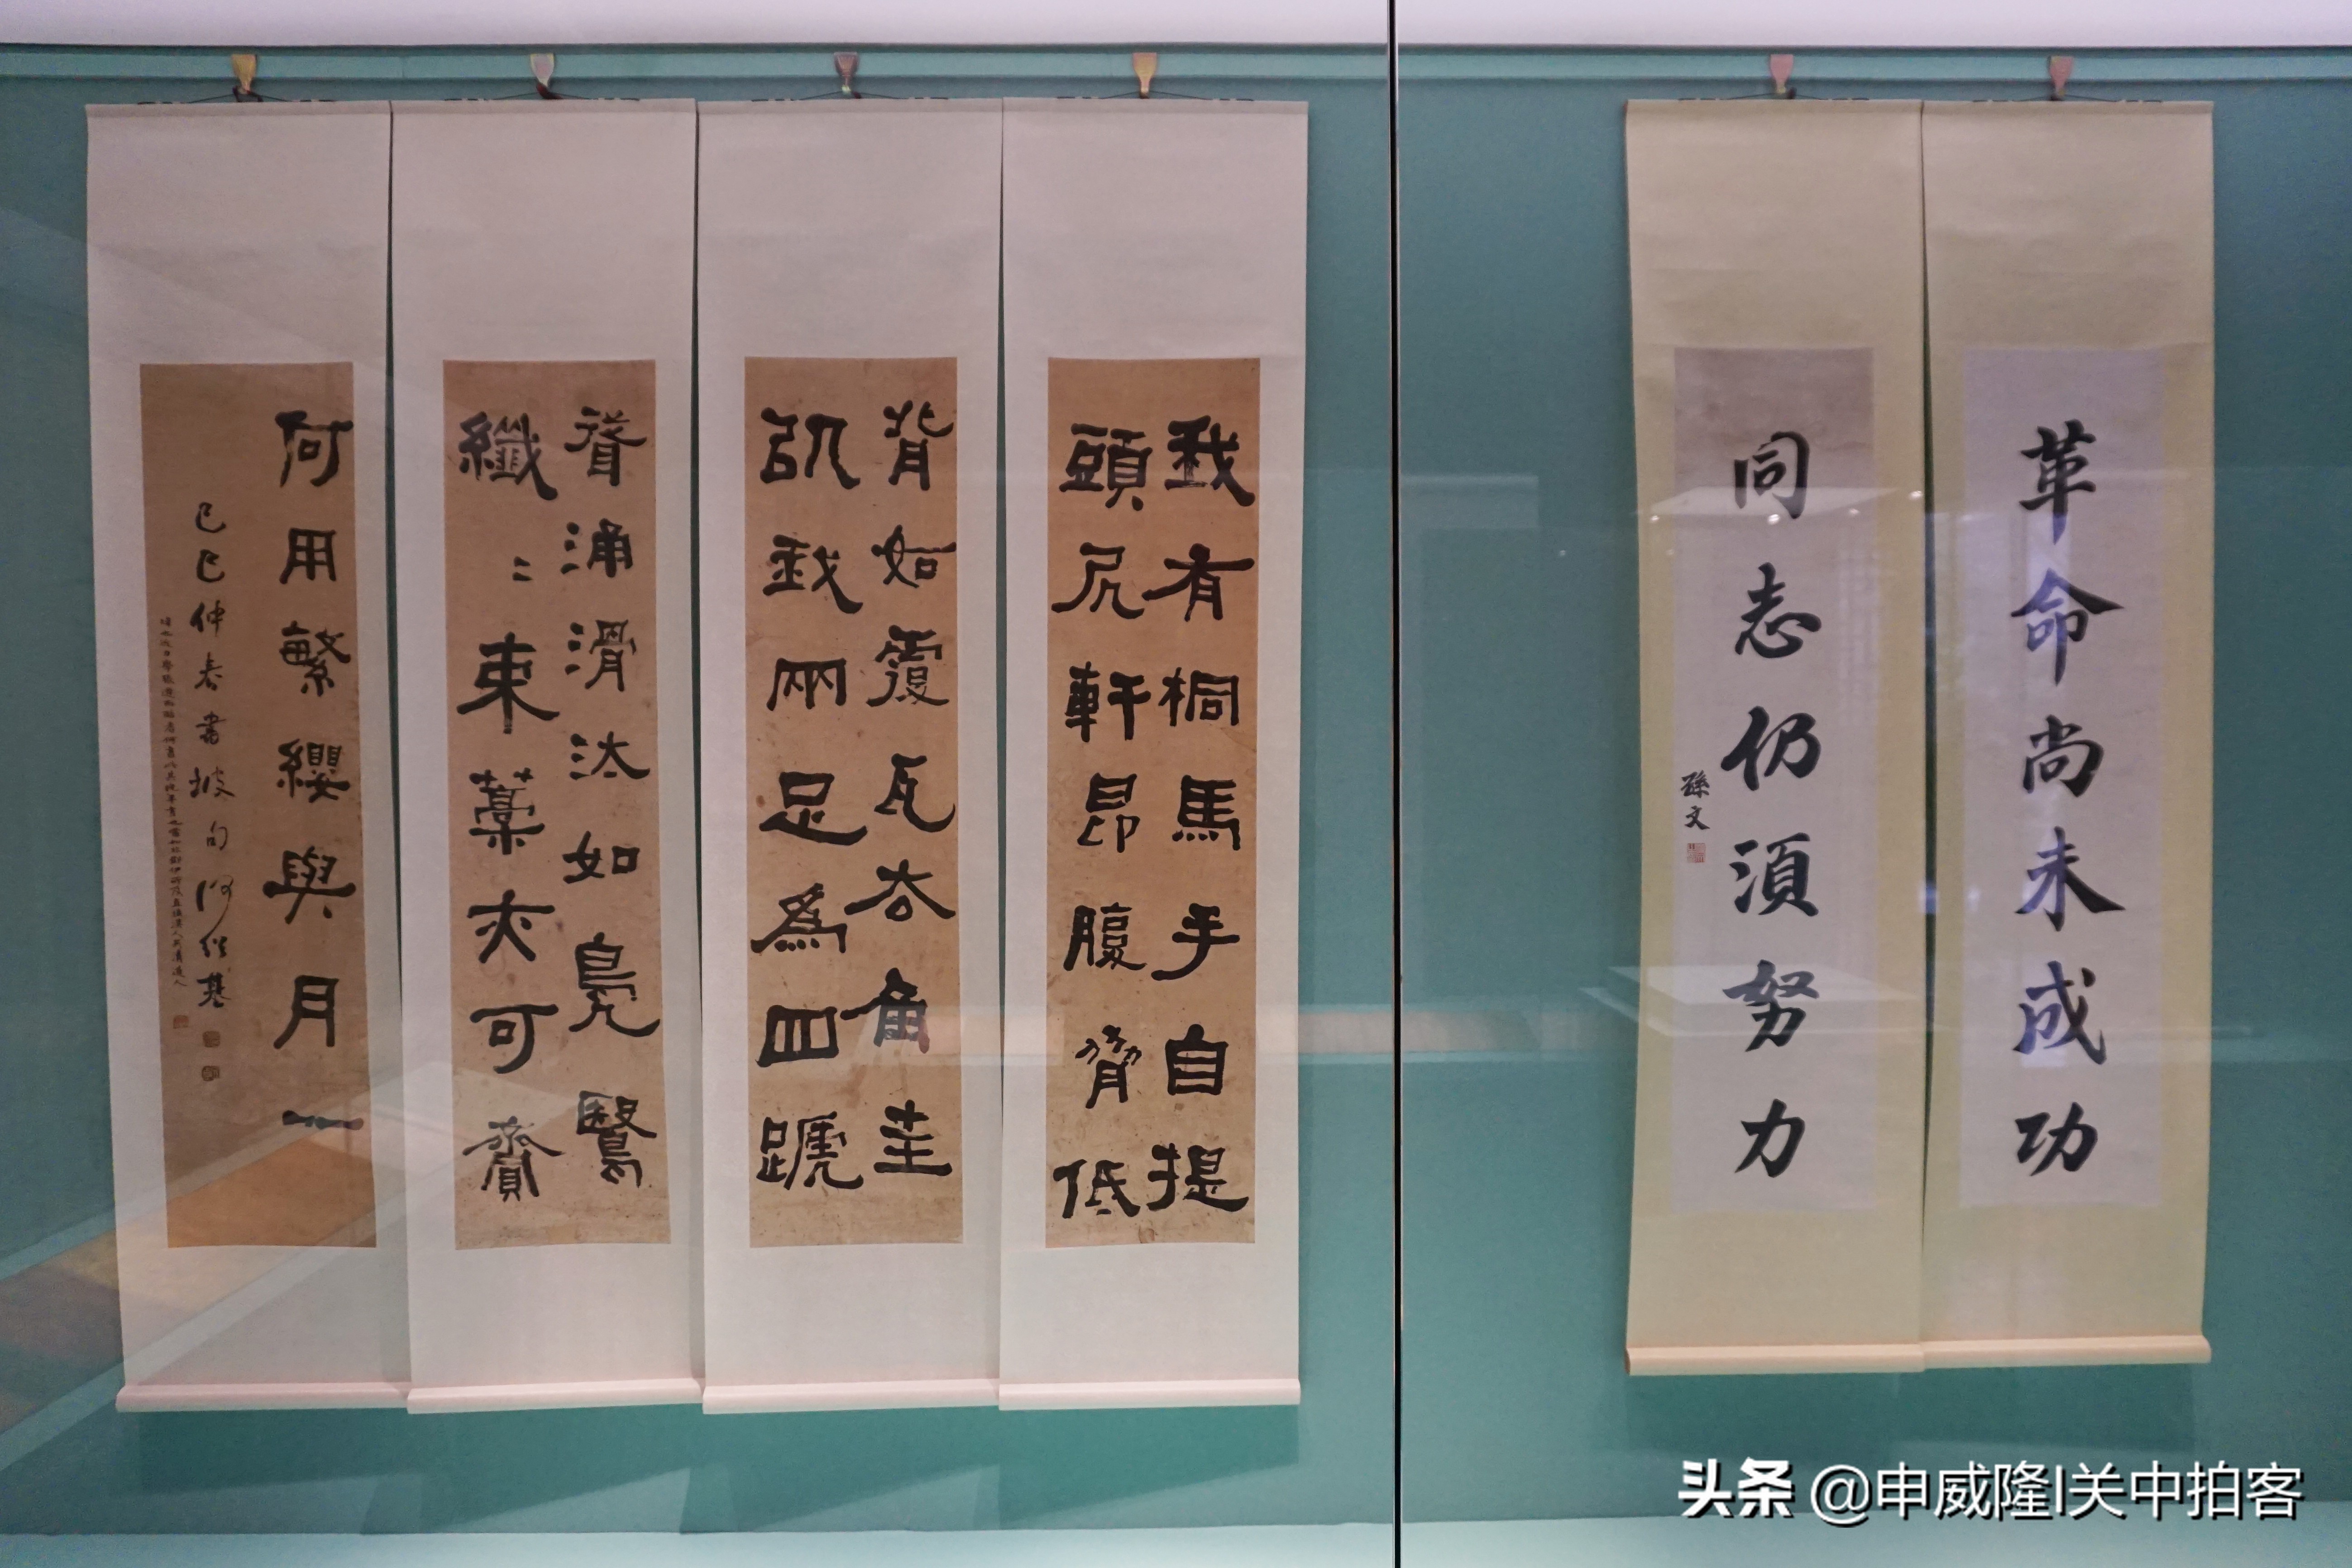 革命尚未成功
同志仍須努力
孫文
我有桐馬手自提
頭尻軒昂腹脅低
背如覆瓦去角圭
㕥我兩足爲四蹏
涌滑汰如鳧鷖
纖〻束藁亦可齎
何用繁纓與月一
己巳仲春書坡句 何紹基
头条 @申威隆|关中拍客